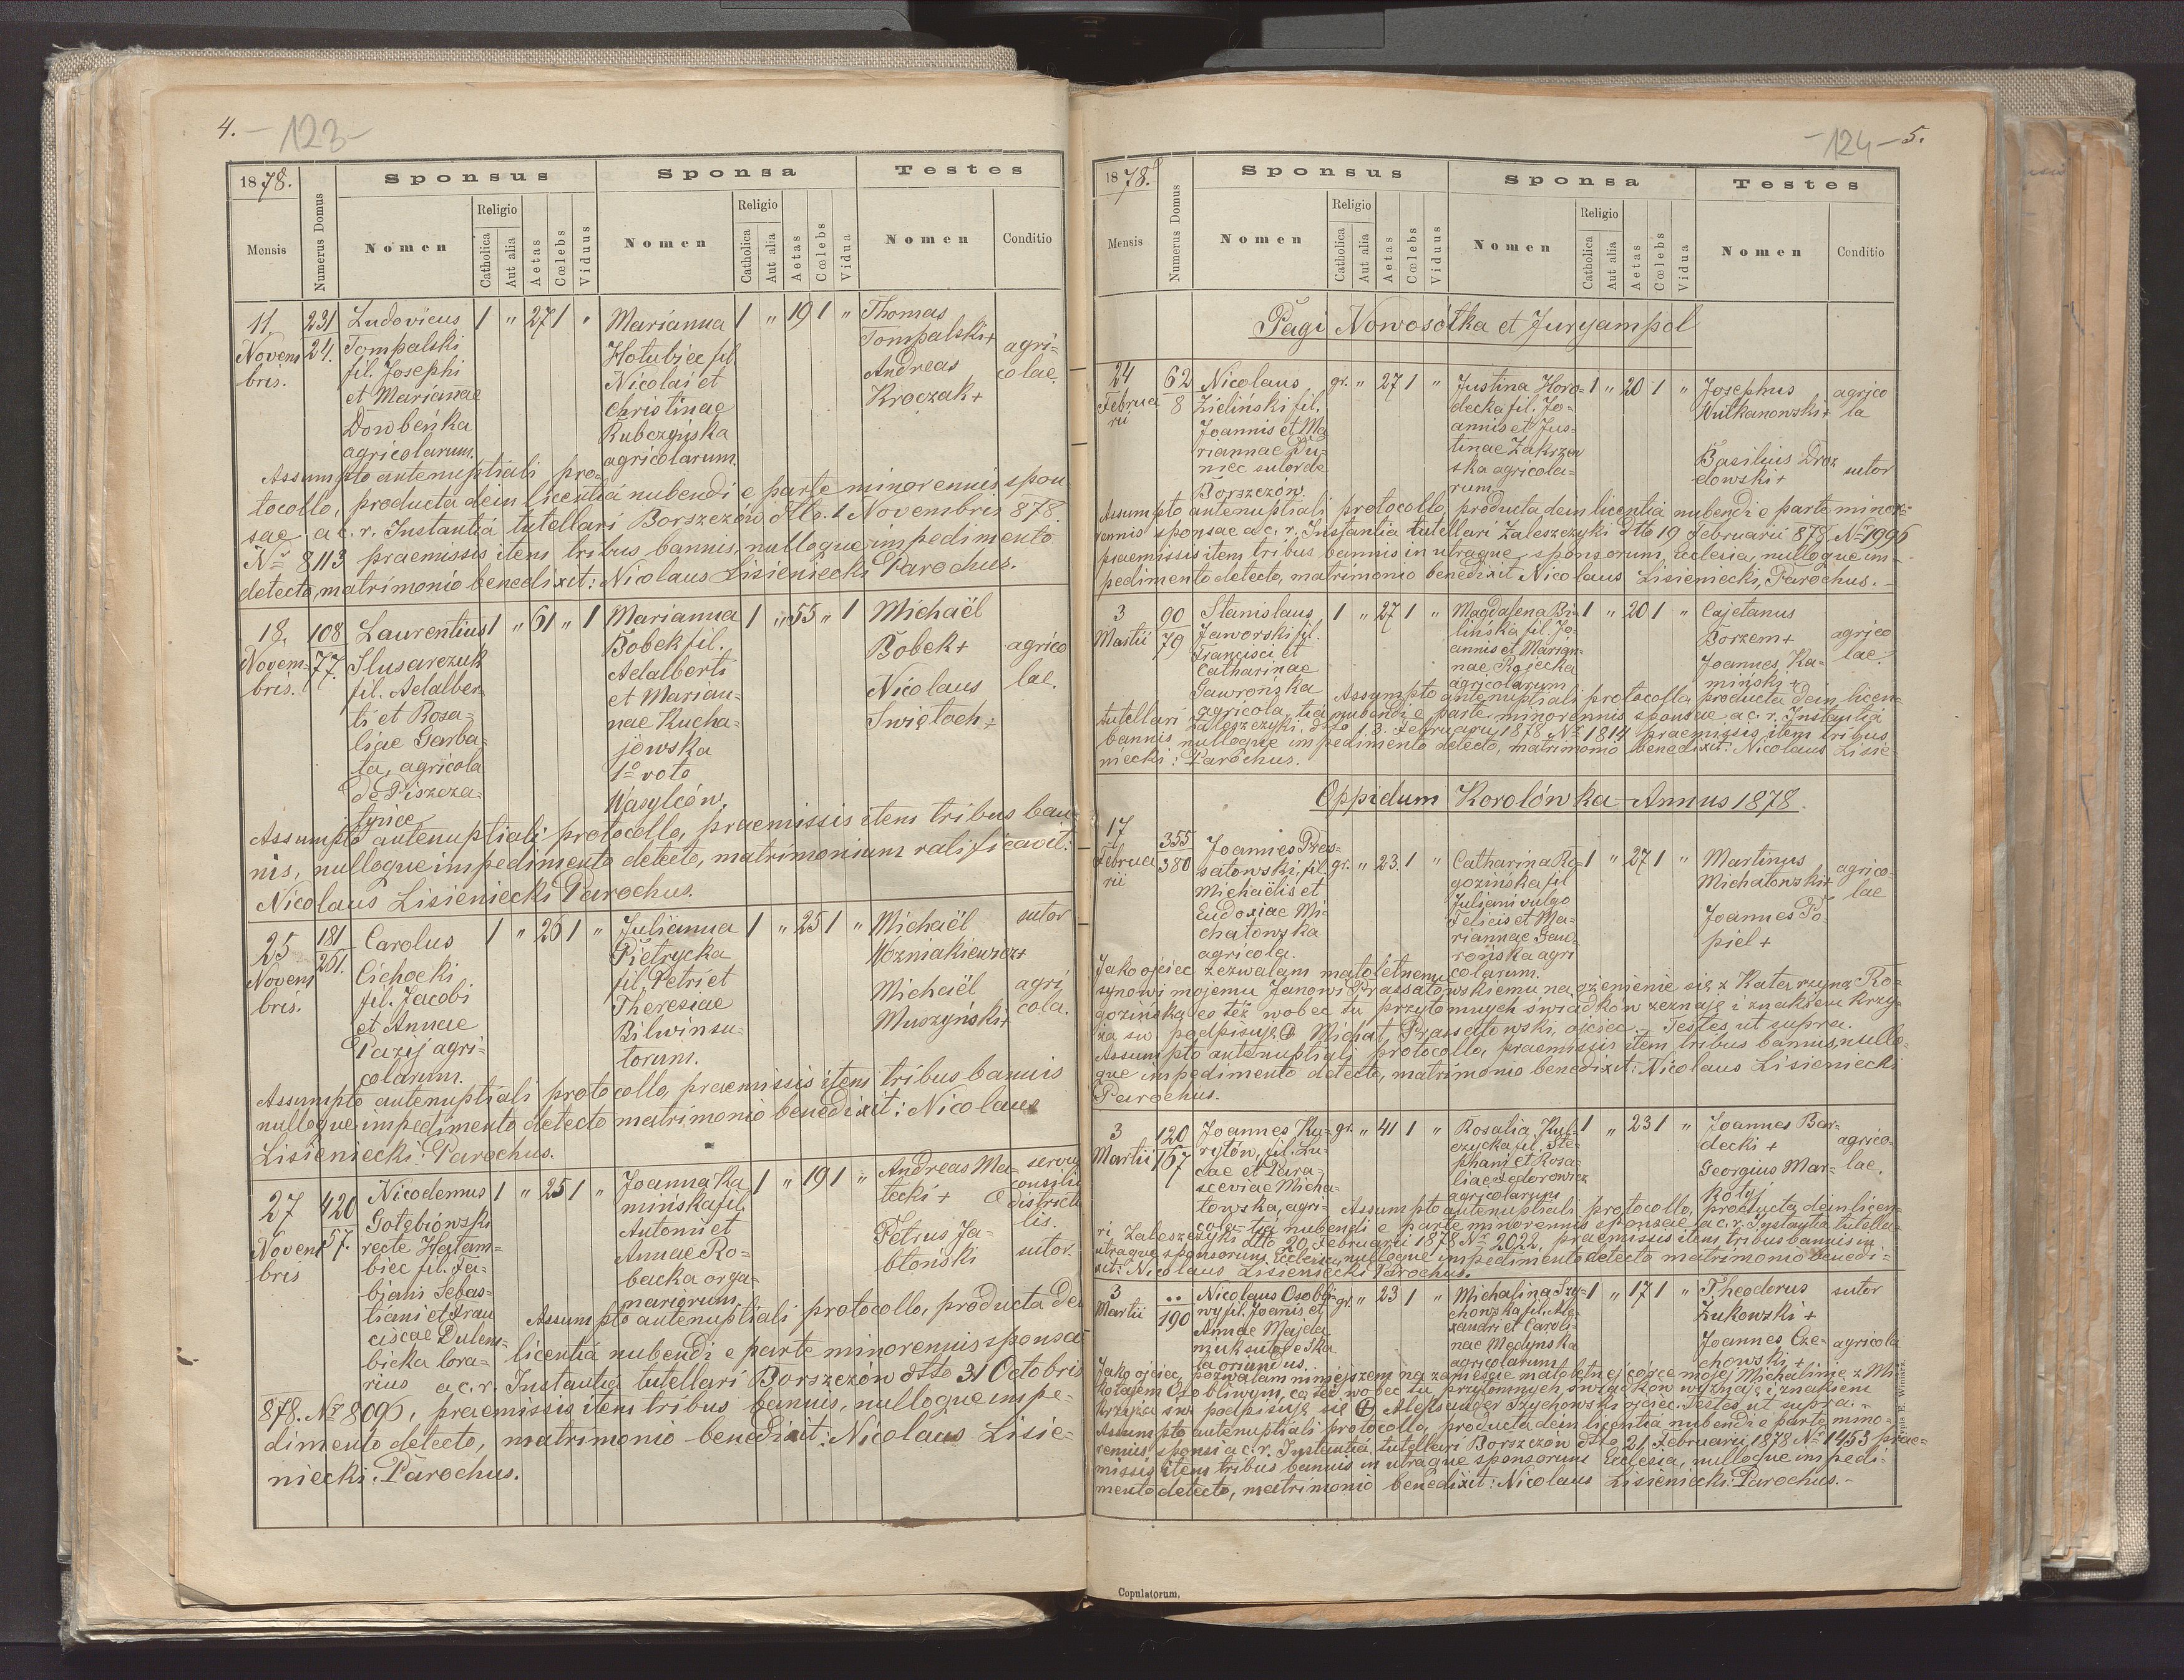 4. -123-
1878.
Sponsus Sponsa Testes
Mensis Numerus Domus Nomen Religio Catholica Aut alia Aetas Cœlebs Viduus Nomen Religio Catholica Aut alia Aetas Cœlebs Vidua Nomen Conditio
11. Novembris. 231 24.
Ludovicus
Tompalski
fil. Josephi
et Mariannae
Dowbeńka
agricolarum.
1 " 27 1 "
Marianna
Hołubiec fil.
Nicolai et
Christinae
Rubczyńska
agricolarum.
1 " 19 1 "
Thomas
Tompalski +
Andreas
Kroczak +
agri-
colae.
Assumpto antenuptiali pro-
tocollo, producta dein licentiâ nubendi e parte minorennis spon
sae a c. r. Instantiâ tutellari Borszczów dtto. 1 Novembris 878
Nr 8113 praemissis item tribus bannis, nulloque impedimento
detecto, matrimonio benedixit: Nicolaus Lisieniecki Parochus.
18. Novem-
bris. 108 77.
Laurentius
Slusarczuk
fil. Adalber
ti et Rosa-
liae Garba-
ta, agricola
de Piszcza-
tyńce
1 " 61 " 1
Marianna
Bobek fil.
Adalberti
et Marian-
nae Kucha-
jowska
1o voto
Wasylców.
1 " 55 " 1
Michaël
Bobek +
Nicolaus
Swiętoch +
agrico
lae.
Assumpto antenuptiali protocollo, praemissis item tribus ban
nis, nulloque impedimento detecto, matrimonium ratificavit:
Nicolaus Lisieniecki Parochus.
25 Novem
bris. 181 251.
Carolus
Cichocki
fil. Jacobi
et Annae
Pazij agri-
colarum.
1 " 26 1 "
Julianna
Pietrycka
fil. Petri et
Theresiae
Bilwin su-
torum.
1 " 25 1 "
Michaël
Wozniakiewicz +
Michaël
Muszyński +
sutor
agri
cola.
Assumpto antenuptiali protocollo, praemissis item tribus bannis
nulloque impedimento detecto matrimonio benedixit: Nicolaus
Lisieniecki: Parochus.
27 Novem
bris 420 57.
Nicodemus
Gołębiowski
recte Hałam-
biec fil. Fa-
biani Sebas-
tiani et Fran
ciscae Dulem-
bicka lora-
rius
1 " 25 1 "
Joanna Ka
mińska fil.
Antonii et
Annae Ro-
backa orga-
mariorum
1 " 19 1 "
Andreas Ma-
łecki +
Petrus Ja-
błonski
servus
consilii
districtu
lis.
sutor.
Assumpto antenuptiali protocollo, producta de
licentiâ nubendi e parte minorennis sponsa
a c. r. Instantiâ tutellari Borszczów dtto 31 Octobris
878. Nr 8096, praemissis item tribus bannis, nulloque impe-
dimento detecto, matrimonio benedixit: Nicolaus Lisie-
niecki: Parochus.
-124- 5.
1878.
Sponsus Sponsa Testes
Mensis Numerus Domus Nomen Religio Catholica Aut alia Aetas Cœlebs Viduus Nomen Religio Catholica Aut alia Aetas Cœlebs Vidua Nomen Conditio
Pagi Nowosółka et Juryampol
24 Februa
rii 62 8
Nicolaus
Zieliński fil.
Joannis et Ma
riannae Du-
niec sutor de
Borszczów.
gr. " 27 1 "
Justina Horo-
decka fil. Jo-
annis et Jus-
tinae Zakrzew
ska agricola-
rum
1 " 20 1 "
Josephus
Wulkanowski +
Basilius Droz
dowski +
agrico
la
sutor
Assumpto antenuptiali protocollo, producta dein licentiâ nubendi e parte minor-
rennis sponsae a c. r. Instantia tutellari Zaleszczyki dtto 19 Februarii 878, Nr 1996
praemissis item tribus bannis in utraque sponsorum, Ecclesia, nulloque im-
pedimento detecto, matrimonio benedixit Nicolaus Lisieniecki, Parochus.-
3
Martii 90 79
Stanislaus
Jaworski fil.
Francisci et
Catharinae
Gawrońska
agricola,
1 " 27 1 "
Magdalena Bi-
lińska fil. Jo-
annis et Marian-
nae Rojecka
agricolarum
1 " 20 1 "
Cajetanus
Borzem +
Joannes Ka-
miński +
agrico
lae.
Assumpto antenuptiali protocollo, producta dein licen-
tiâ nubendi e parte minorennis sponsae a c. r. Instantiâ
tutellari Zaleszczyki. dtto 13. Februarii 1878 Nr 1814 praemissis item tribus
bannis nulloque impedimento detecto, matrimonio benedixit: Nicolaus Lisie-
niecki: Parochus.
Oppidum Korolówka - Annus 1878.
17
Februa
rii 355 380
Joannes Pras-
satowski, fil.
Michaëlis et
Eudoxiae Mi-
chałowska
agricola.
gr. " 23. 1 "
Catharina Ro-
gozińska fil
Juljani vulgo
Felicis et Ma-
riannae Gaw-
rońska agri
colarum.
1 " 27 1 "
Martinus
Michałowski +
Joannes To-
piel +
agrico-
lae
Jako ojciec zezwalam małoletnemu
synowi mojemu Janowi Prassatowskiemu na ożenienie się z Katarzyną Ro-
gozinską co też wobec tu przytomnych świadków zeznaję i znakiem krzy-
ża św. podpisuję + Michał Prassatowski, ojciec. - Testes ut supra.
Assumpto antenuptiali protocollo, praemissis item tribus bannis, nullo-
que impedimento detecto, matrimonio benedixit: Nicolaus Lisieniecki
Parochus.
3
Martii 120 167
Joannes Ku-
rytów, fil. Lu-
cae et Para-
sceviae Micha-
łowska, agri-
cola
gr. " 41 1 "
Rosalia Kul-
czycka fil. Ste-
phani et Rosa-
liae Fedorowicz
agricolarum
1 " 23 1 "
Joannes Bar-
decki +
Georgius Mar-
kotaj
agrico-
lae.
Assumpto antenuptiali protocollo, producta dein licen-
tiâ nubendi e parte minorennis sponsae a c. r. Instantia tutella-
ri Zaleszczyki dtto 20 Februarii 1878 Nr 2022, praemissis item tribus bannis in
utraque sponsorum Ecclesia, nulloque impedimento detecto matrimonio benedi-
xit: Nicolaus Lisieniecki Parochus.
3
Martii .. 190
Nicolaus Osobli-
wy fil. Joanis et
Annae Majda
niuk sutor e Ska
ła oriundus.
gr. " 23 1 "
Michalina Szy-
chowska fil. Ale-
xandri et Caroli-
nae Medynska
agricolarum
1 " 17 1 "
Theodorus
Zukowski +
Joannes Cze-
chowski +
sutor
agricola
Jako ojciec, pozwalam niniejszem na zamęście małoletnej córce mojej Michalinie z Mi-
kołajem Osobliwym, co też wobec tu przytomnych świadków wyznaję i znakiem
krzyża św. podpisuję się + Aleksander Szychowski ojciec. Testes ut supra. -
Assumpto antenuptiali protocollo, producta dein licentiâ nubendi e parte mino-
rennis sponsi a c. r. Instantiâ tutellari Borszczów dtto 21 Februarii 1878 Nr 1453 prae-
missis item tribus bannis in utraque sponsorum Ecclesia, nulloque impedi-
mento detecto, matrimonio benedixit: Nicolaus Lisieniecki: Parochus.-
Copulatorum,
Typis E. Winiarz.